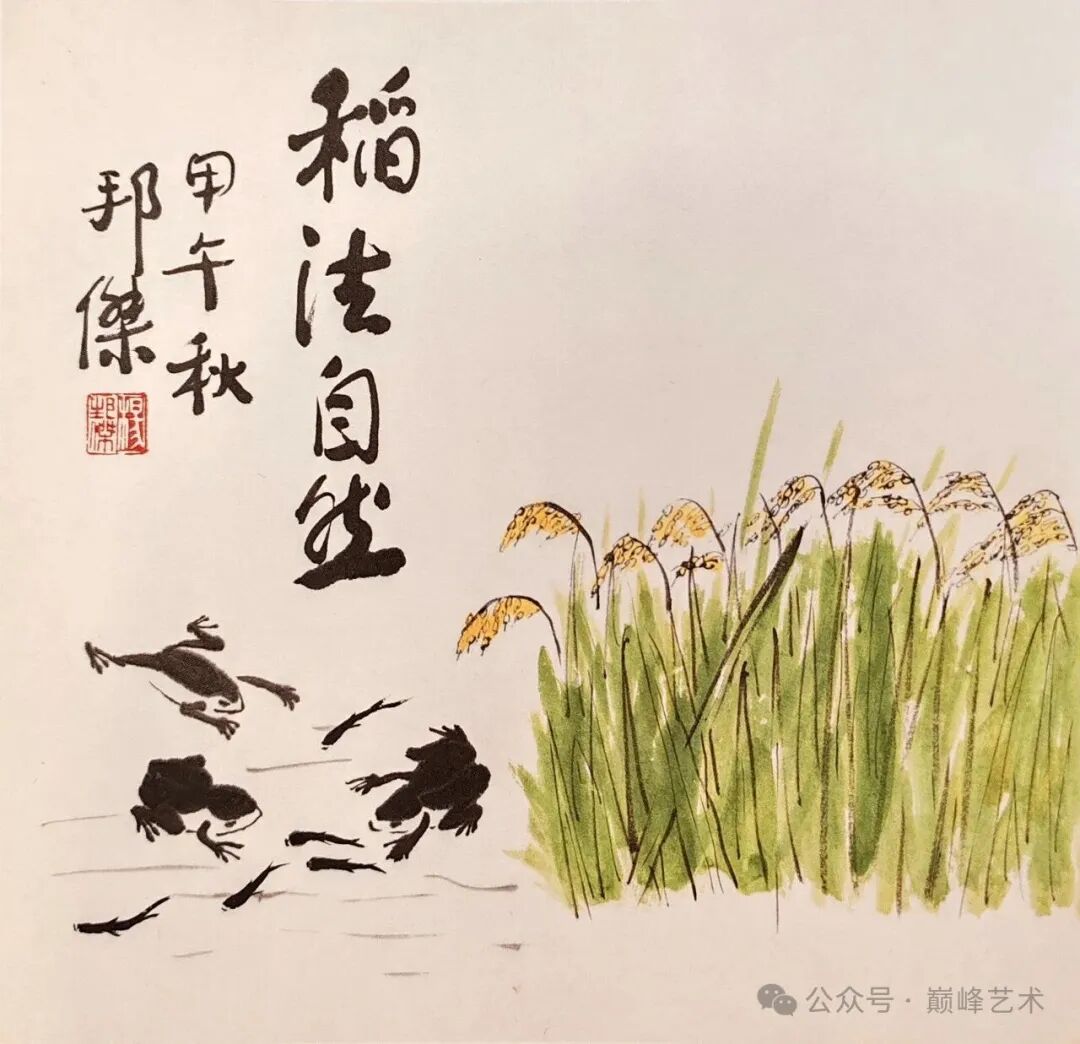 稻法自然
甲午秋
邦傑
公众号·巅峰艺术